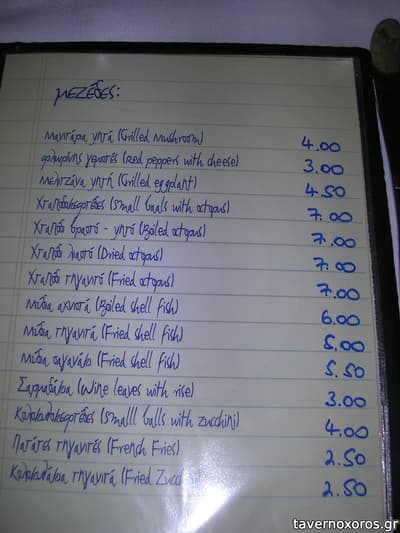 μεζέδες:
Μανιτάρια ψητά (Grilled Mushroom) 4.00
φλωρίνης γεμιστές (Red peppers with cheese) 3.00
Μελιτζάνα ψητή (Grilled eggplant) 4.50
Χταποδοκεφτέδες (Small balls with octopus) 7.00
Χταπόδι βραστό - ψητό (Boiled octopus) 7.00
Χταπόδι λιαστό (Dried octopus) 7.00
Χταπόδι τηγανιτό (Fried octopus) 7.00
Μύδια αχνιστά (Boiled shell fish) 6.00
Μύδια τηγανιτά (Fried shell fish) 5.00
Μύδια σαγανάκι (Fried shell fish) 5.50
Σαρμαδάκια (Wine leaves with rise) 3.00
Κολοκυθοκεφτέδες (Small balls with zucchini) 4.00
Πατάτες τηγανιτές (French Fries) 2.50
Κολοκυθάκια τηγανιτά (Fried Zucchini) 2.50
tavernoxoros.gr